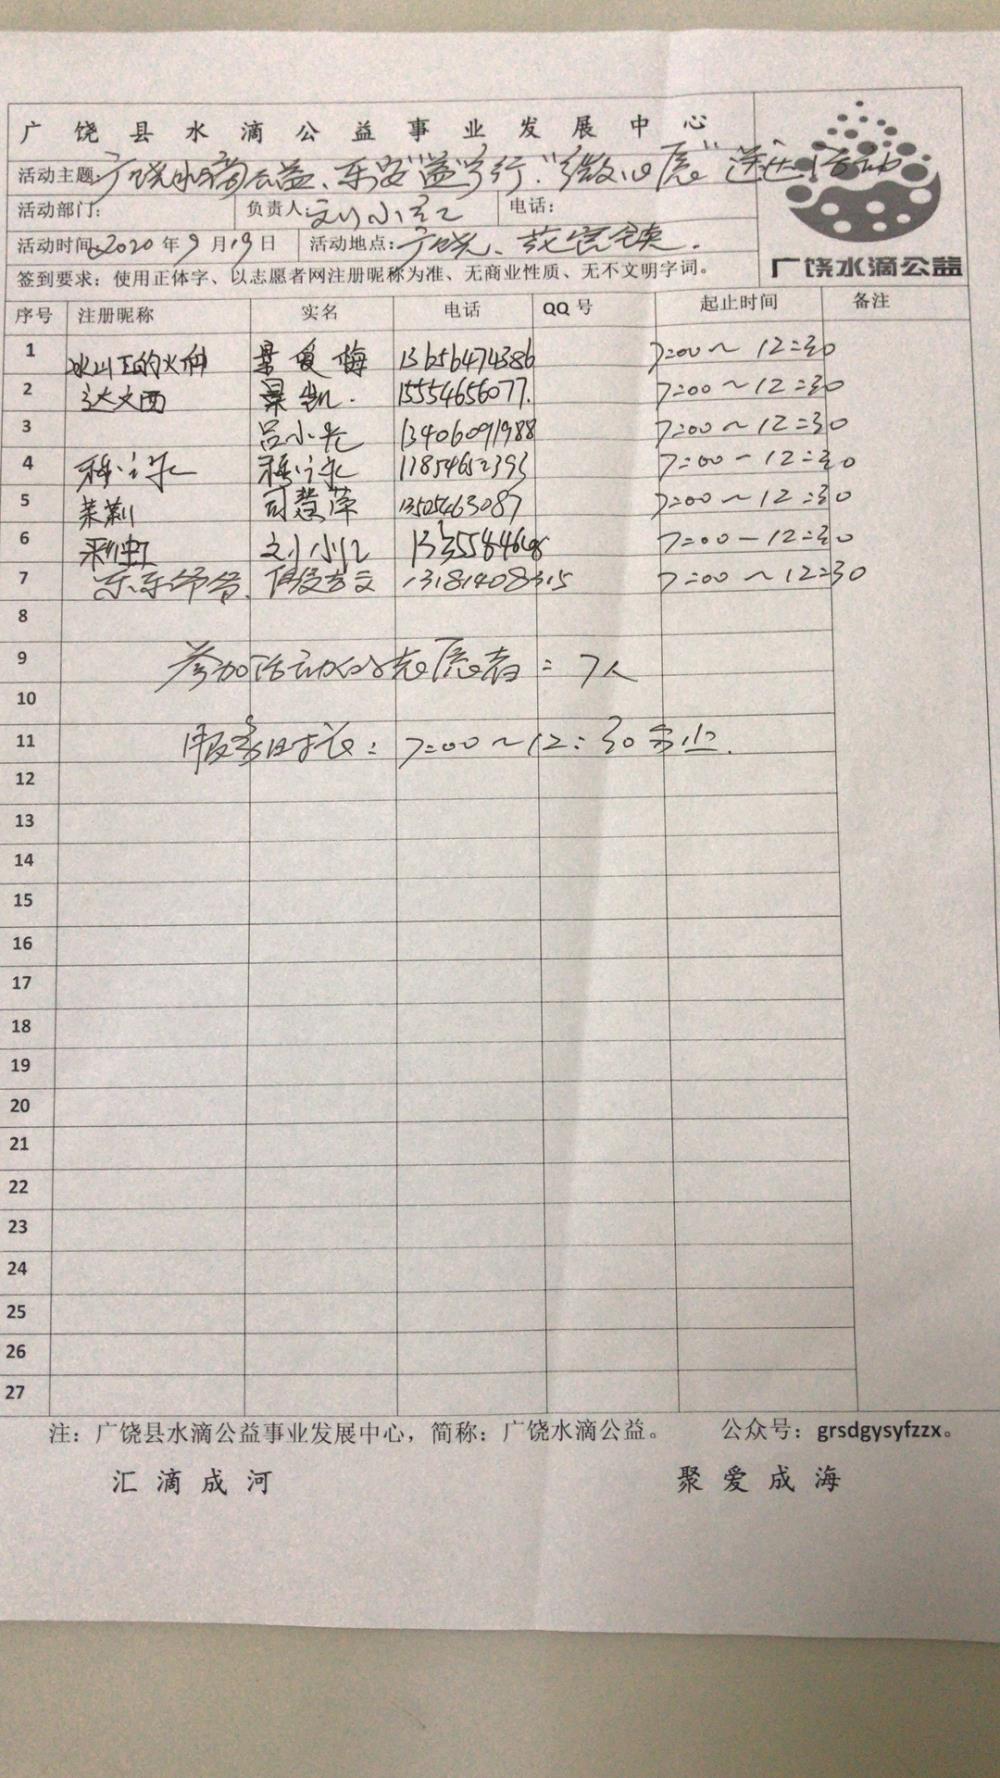 广饶县水滴公益事业发展中心
活动主题:广饶水滴公益、东安"益"行."微心愿"送达活动
活动部门: 负责人:刘小红 电话:
活动时间:2020年9月19日 活动地点:广饶、花官镇.
广饶水滴公益
签到要求:使用正体字、以志愿者网注册昵称为准、无商业性质、无不文明字词。
序号 注册昵称 实名 电话 QQ号 起止时间 备注
1 冰山下的火种 景爱梅 13656474386 7:00～12:30
2 达文西 景凯. 15554656077. 7:00～12:30
3 吕小光 13406091988 7:00～12:30
4 7:00-12:30
5 茉莉 13505463087 7:00～12:30
6 彩虹 刘小红 7:00-12:30
7 13181408315 7:00～12:30
8
9 参加活动的志愿者:7人
10
11 服务时长:7:00～12:30
12
13
14
15
16
17
18
19
20
21
22
23
24
25
26
27
注:广饶县水滴公益事业发展中心,简称:广饶水滴公益。 公众号:grsdgysyfzzx。
汇滴成河 聚爱成海